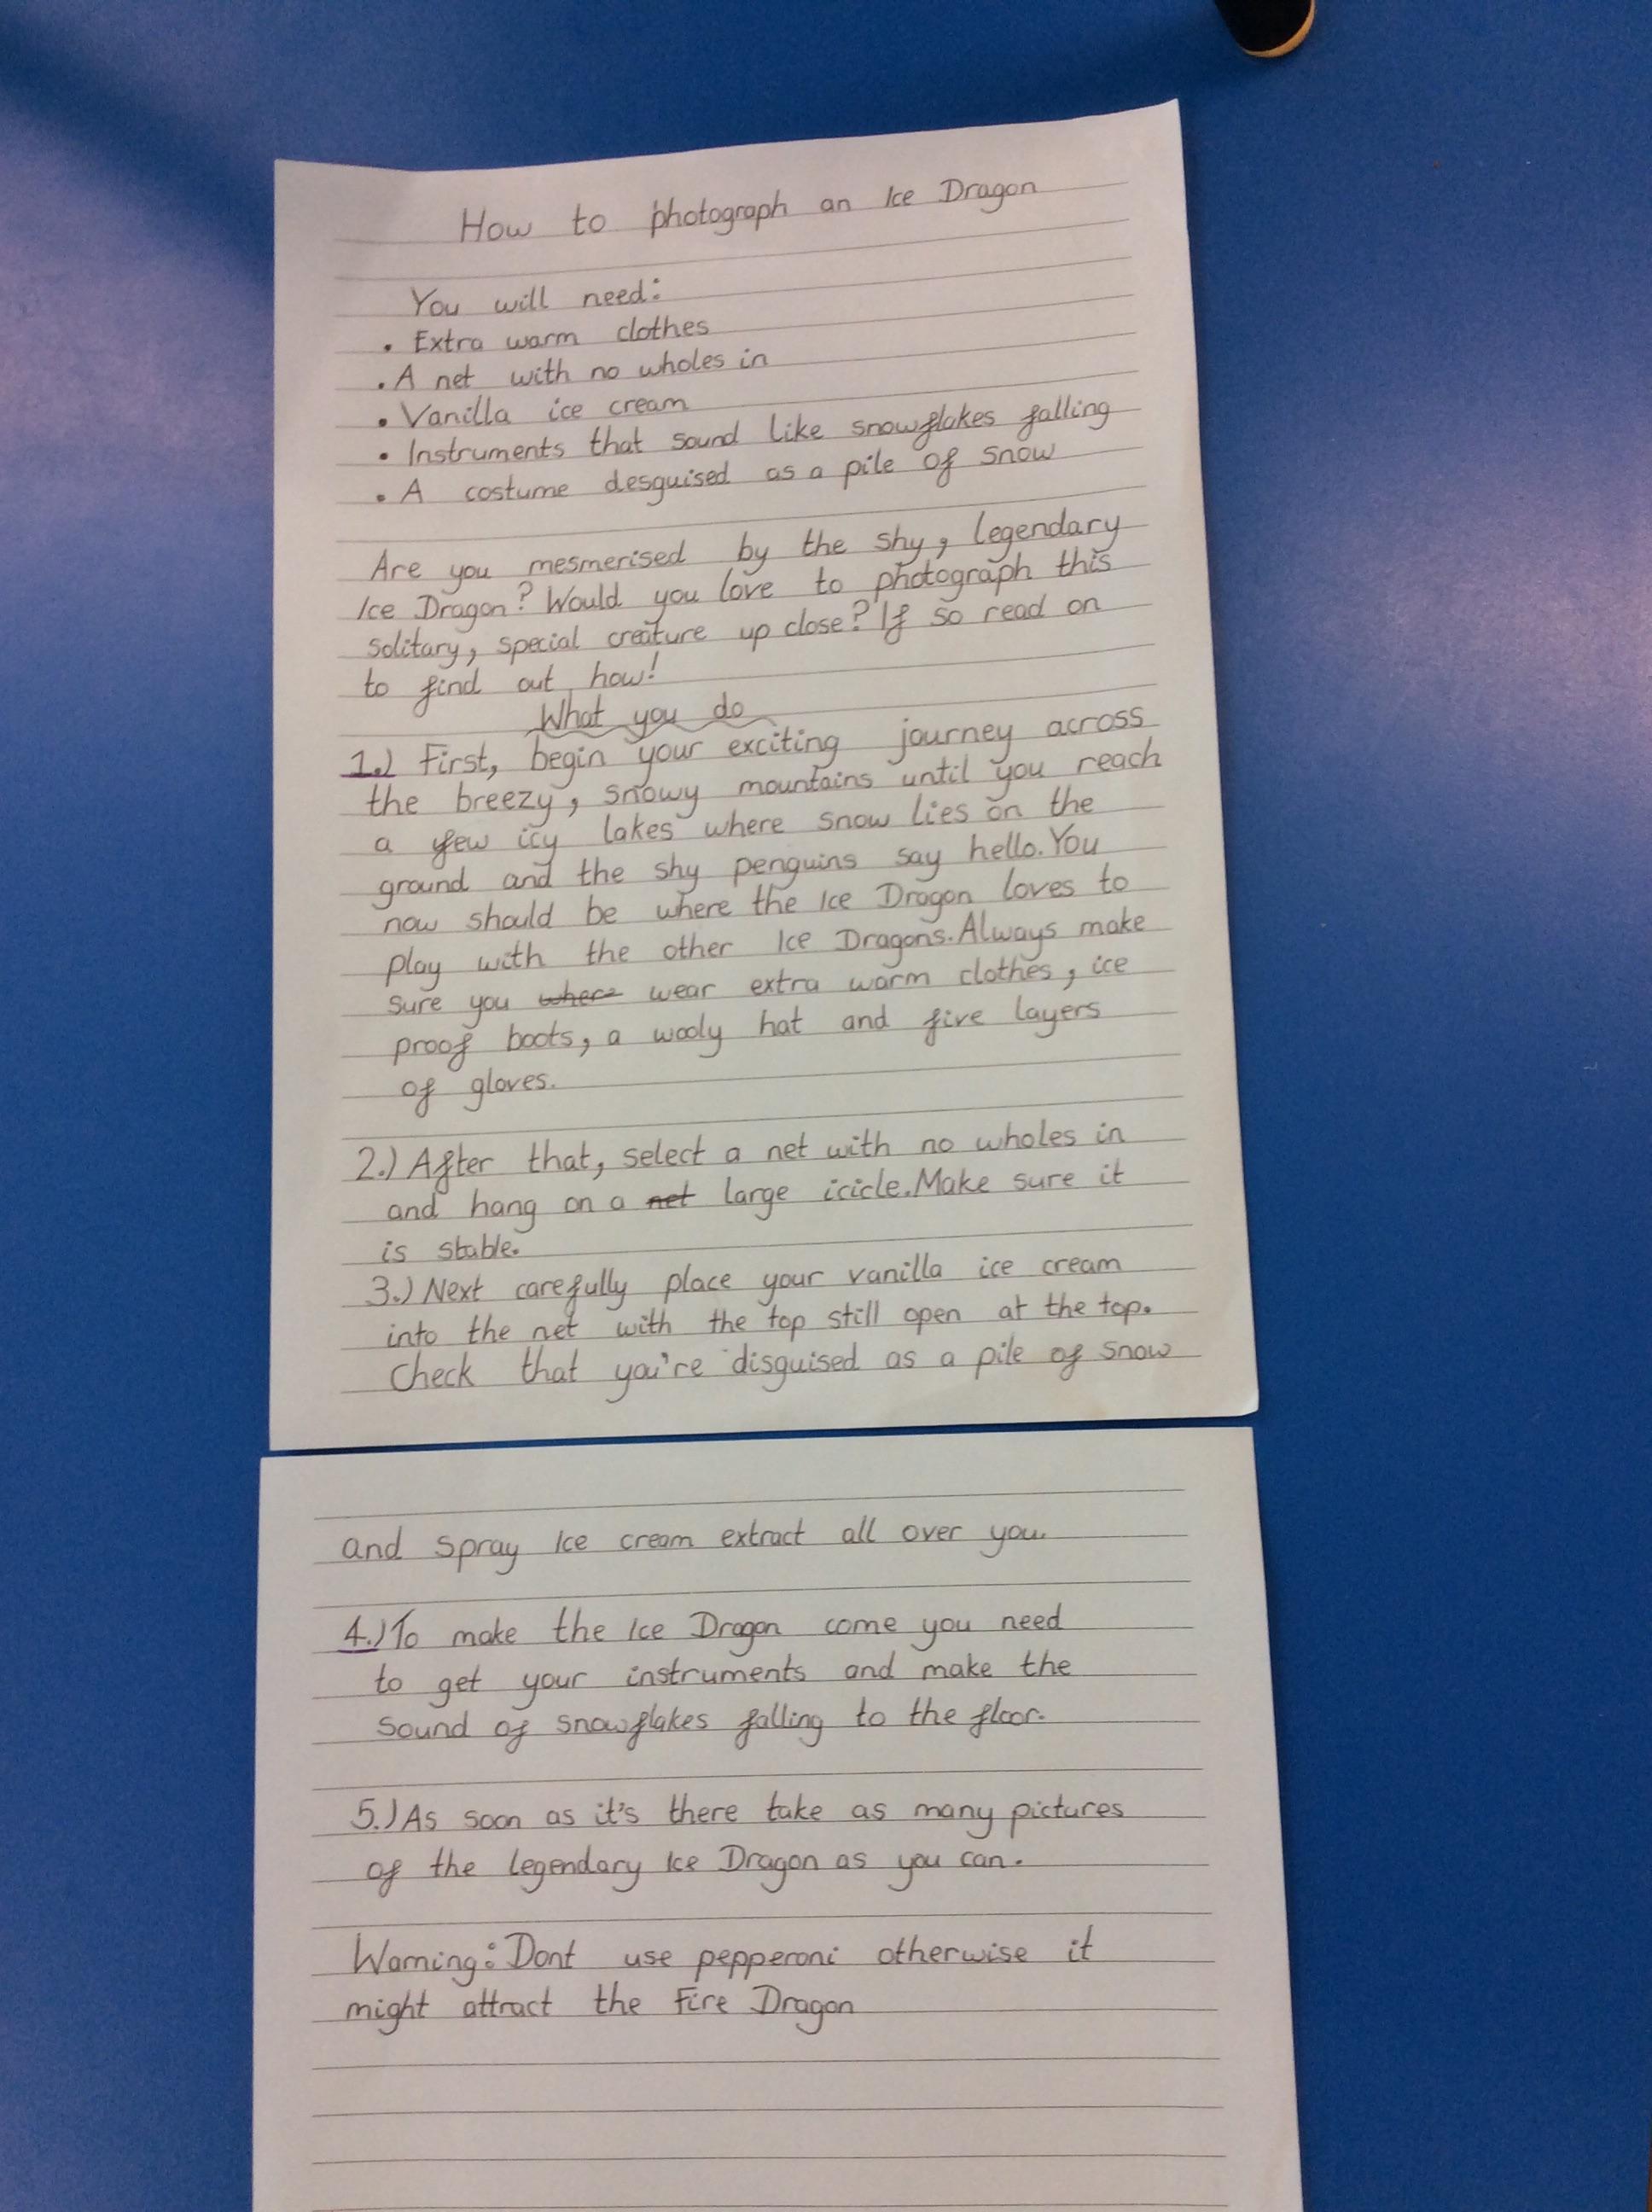 How to photograph an Ice Dragon
You will need:
• Extra warm clothes
• A net with no wholes in
• Vanilla ice cream
• Instruments that sound like snowflakes falling
• A costume desguised as a pile of snow
Are you mesmerised by the shy, legendary
Ice Dragon? Would you love to photograph this
solitary, special creature up close? If so read on
to find out how!
What you do
1.) First, begin your exciting journey across
the breezy, snowy mountains until you reach
a few icy lakes where snow lies on the
ground and the shy penguins say hello. You
now should be where the Ice Dragon loves to
play with the other Ice Dragons. Always make
sure you where wear extra warm clothes, ice
proof boots, a wooly hat and five layers
of gloves.
2.) After that, select a net with no wholes in
and hang on a net large icicle. Make sure it
is stable.
3.) Next carefully place your vanilla ice cream
into the net with the top still open at the top.
Check that you're disguised as a pile of snow
and spray Ice cream extract all over you.
4.) To make the Ice Dragon come you need
to get your instruments and make the
sound of snowflakes falling to the floor.
5.) As soon as it's there take as many pictures
of the legendary Ice Dragon as you can.
Warning: Dont use pepperoni otherwise it
might attract the Fire Dragon